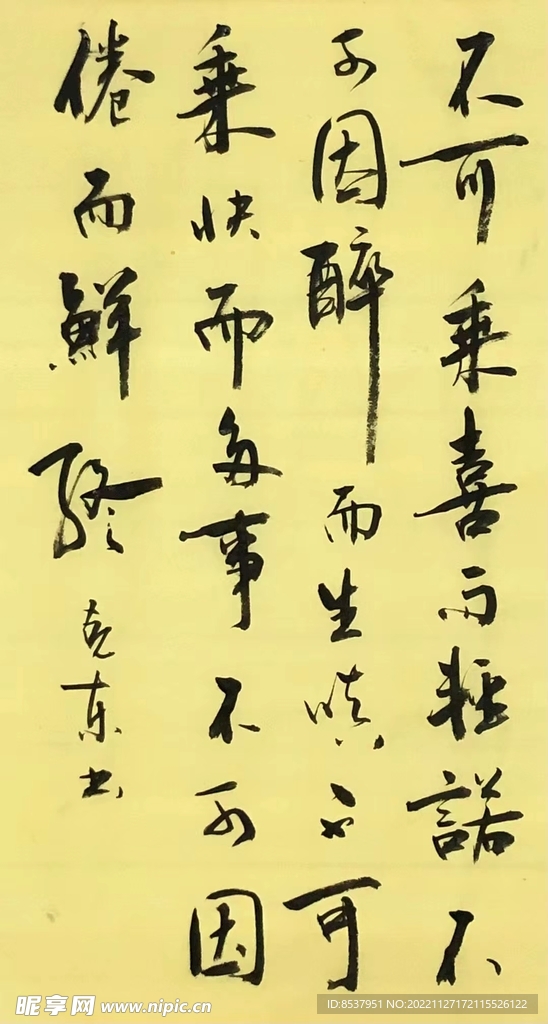 不可乘喜而輕諾不
可因醉而生嗔不可
乘快而多事不可因
倦而鮮終
克東书
昵享网 www.nipic.cn
ID:8537951 NO:20221127172115526122